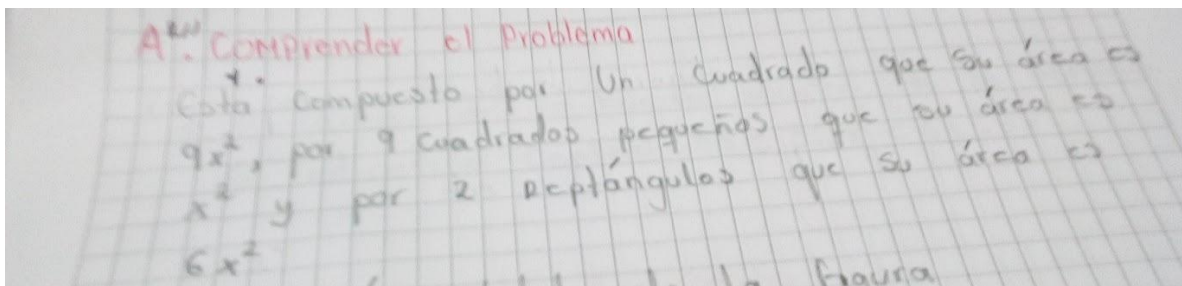 A. Comprender el Problema
Está compuesto por Un cuadrado que su área es
9x², por 9 cuadrados pequeños que su área es
x² y por 2 Reptángulos que su área es
6x²
la figura